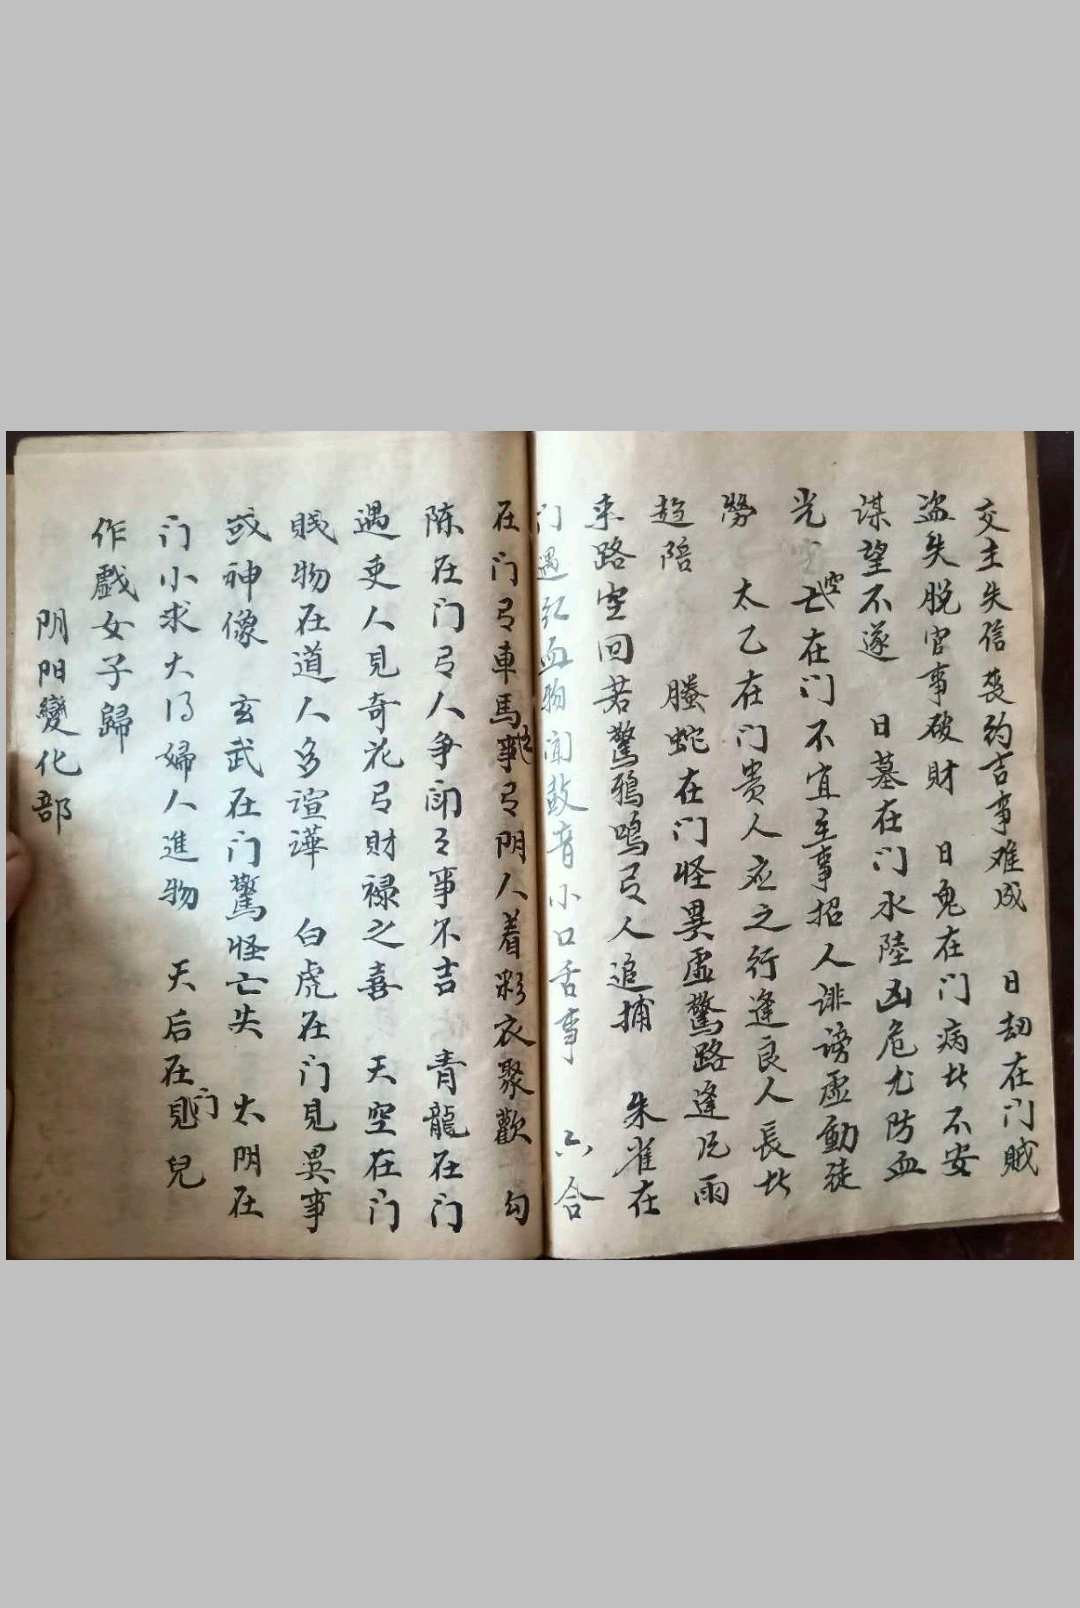 交主失信丧约吉事难成　日劫在门贼
盗失脱官事破财　日鬼在门病比不安
谋望不遂　日墓在门水陸凶危尤防血
光　空亡在门不宜主事招人诽谤虚動徒
勞　太乙在门贵人应之行逢良人長比
趋陪　螣蛇在门怪異虚驚路逢风雨
来路空回若驚鴉鳴弓人追捕　朱雀在
门遇红血物闻鼓音小口舌事　六合
在门弓車馬事弓阴人着彩衣聚歡　勾
陈在门弓人争闹之事不吉　青龍在门
遇吏人見奇花弓財禄之喜　天空在门
贱物在道人多諠譁　白虎在门見異事
或神像　玄武在门驚怪亡失　太阴在
门小求大得婦人進物　天后在门見兒
作戲女子歸
阴阳變化部